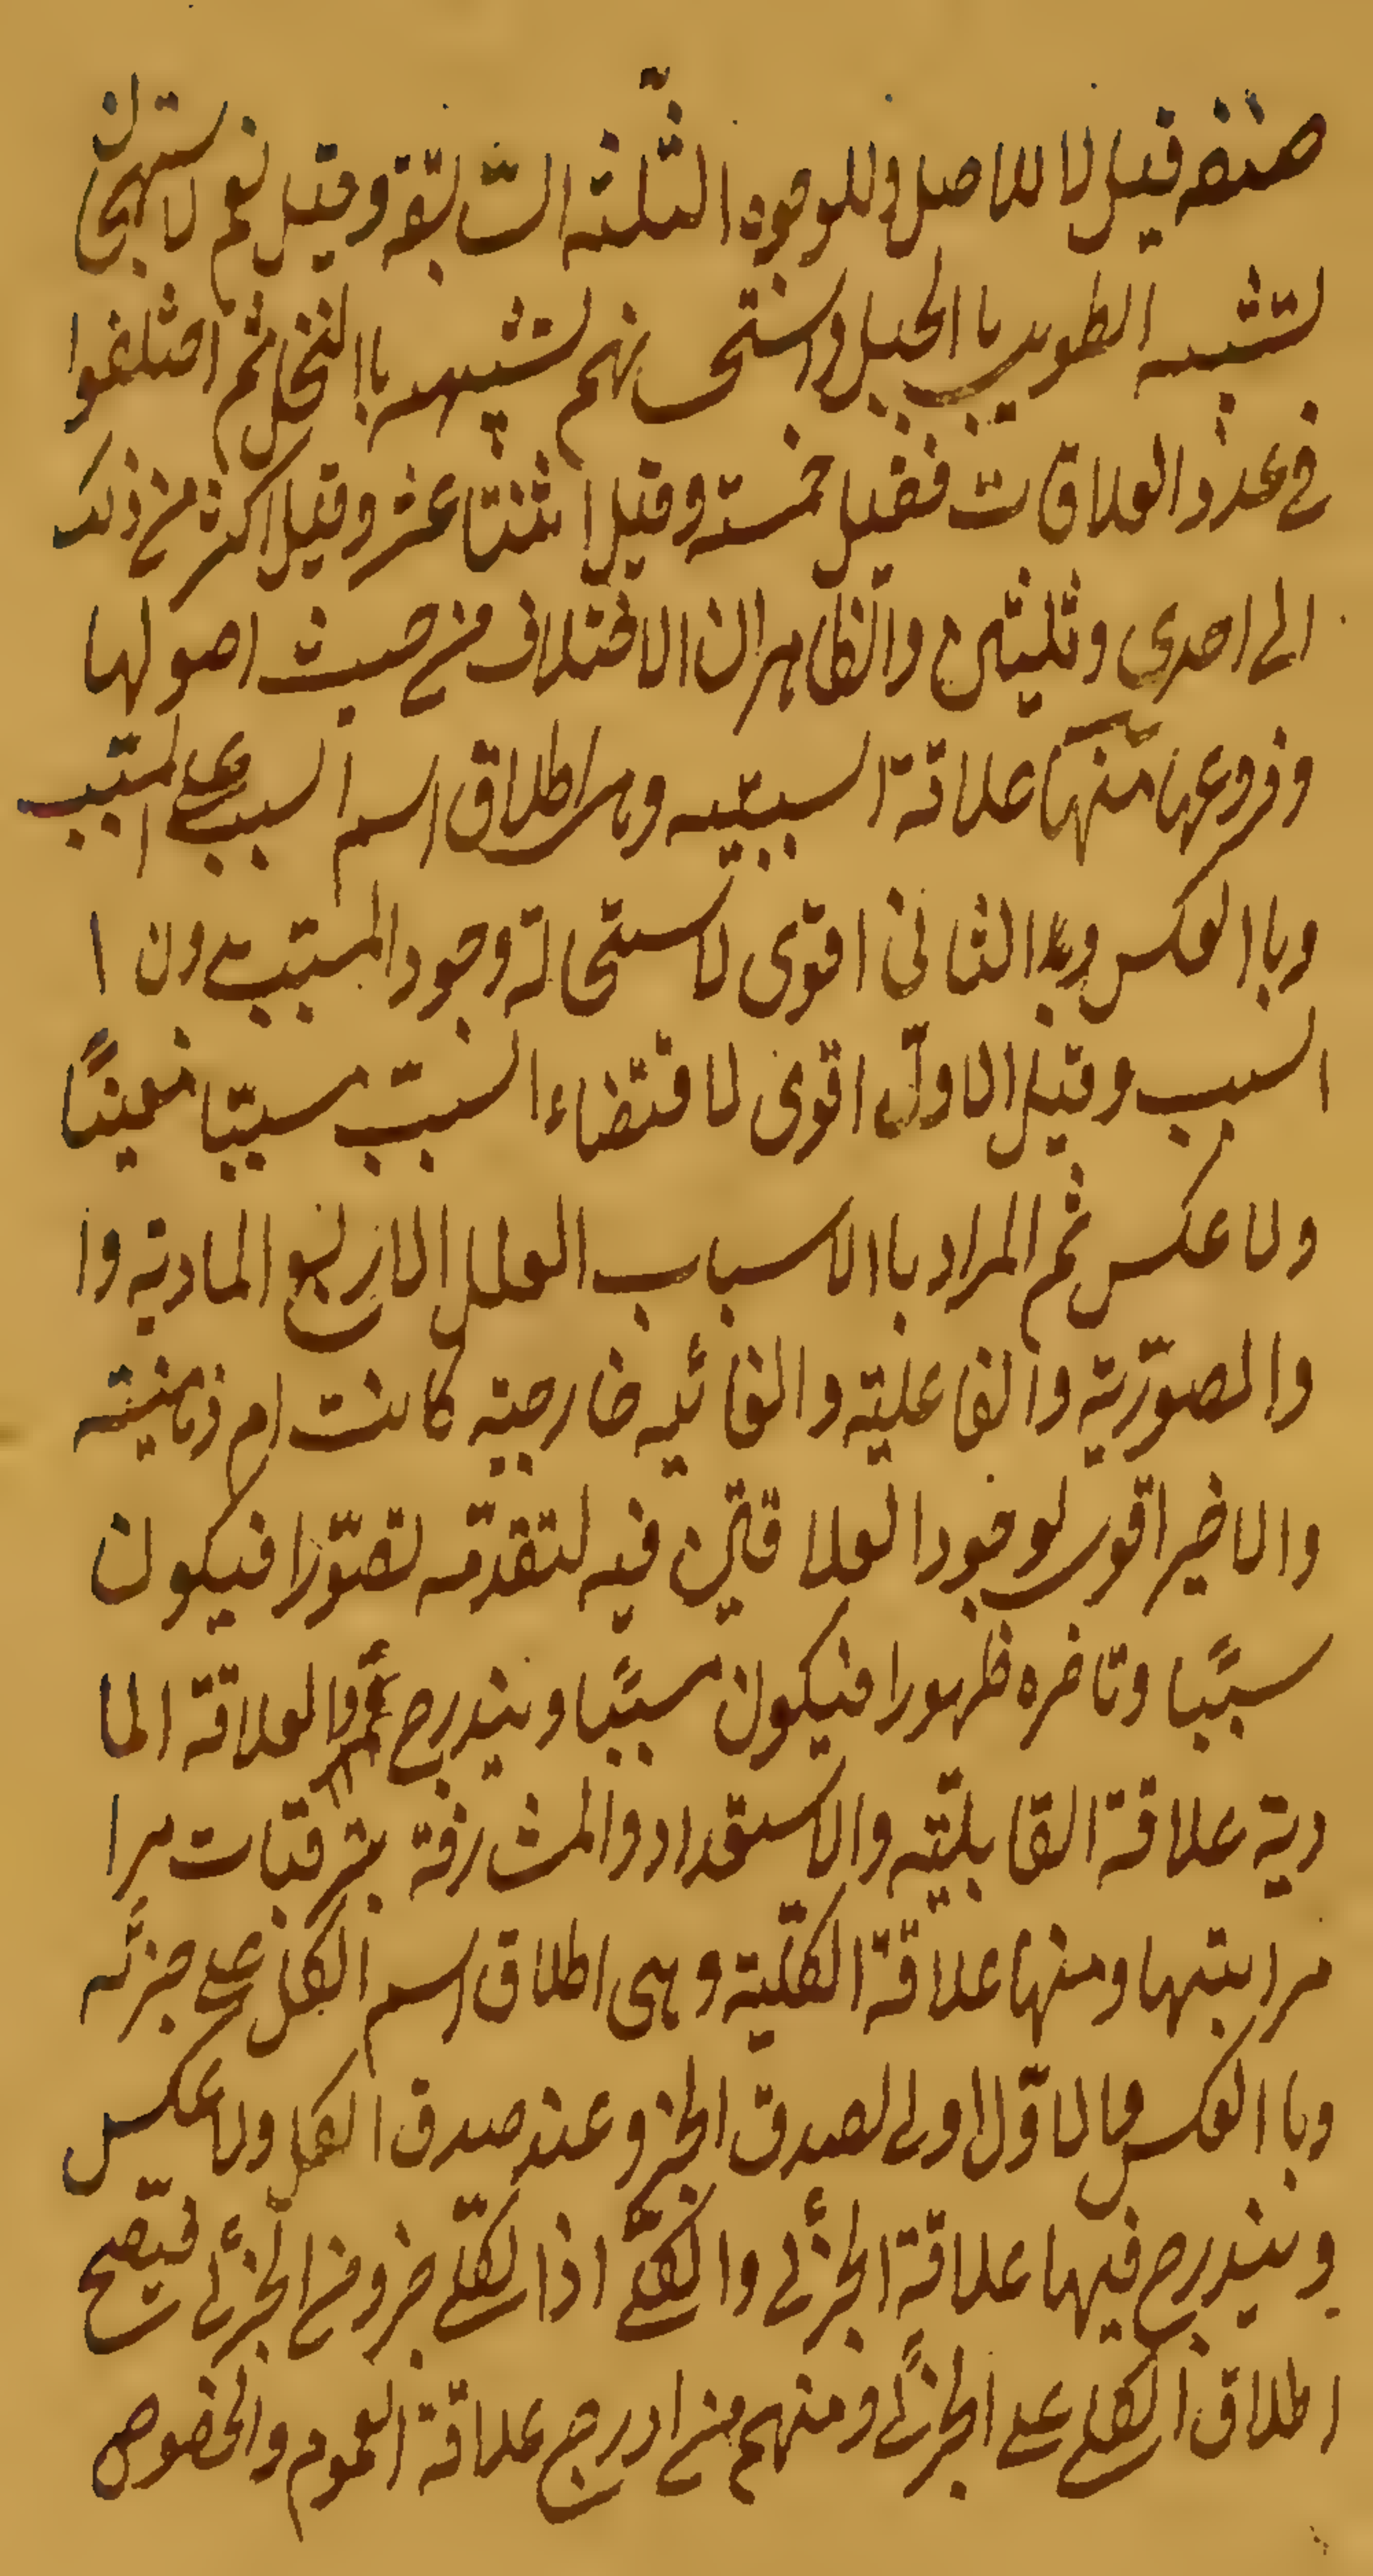 صنفه فقيل لا للاصل وللوجوه الثلثة السّابقة وقيل نعم لاستهجان
تشبيه الطويل باالجبل واستحسانهم تشبيهه باالنخل ثم اختلفوا
في عدد العلاقات فقيل خمسة وقيل اثنتا عشر وقيل اكثر من ذلك
الى احدى وثلثين والظاهر ان الاختلاف من حيث اصولها
وفروعها منها علاقة السببيه وهى اطلاق اسم السبب على المسبب
وباالعكس وهذا الثانى اقوى لاستحالة وجود المسبب بدون ا
السبب وقيل الاول اقوى لاقتضاء السبب مسببا معينًا
ولا عكس ثم المراد باالاسباب العلل الاربع المادية وا
والصورية والفاعلية والغائيه خارجية كانت ام ذهنية
والاخير اقوى لوجود العلاقتين فيه لتقدمه تصورا فيكون
سببًا وتاخره ظهورا فيكون مسببًا ويندرج العلاقة الما
دية علاقة القابلية والاستعداد والمشارفة بترقبات مرا
مراتبتها ومنها علاقة الكلية وهى اطلاق اسم الكل على جزئه
وباالعكس والاول اولى لصدق الجزو عند صدق الكل ولا عكس
ويندرج فيها علاقة الجزئى والكلى اذا لكلى جزو من الجزئى فيصح
اطلاق الكلى على الجزئى ومنهم من ادرج علاقة العموم والخصوص